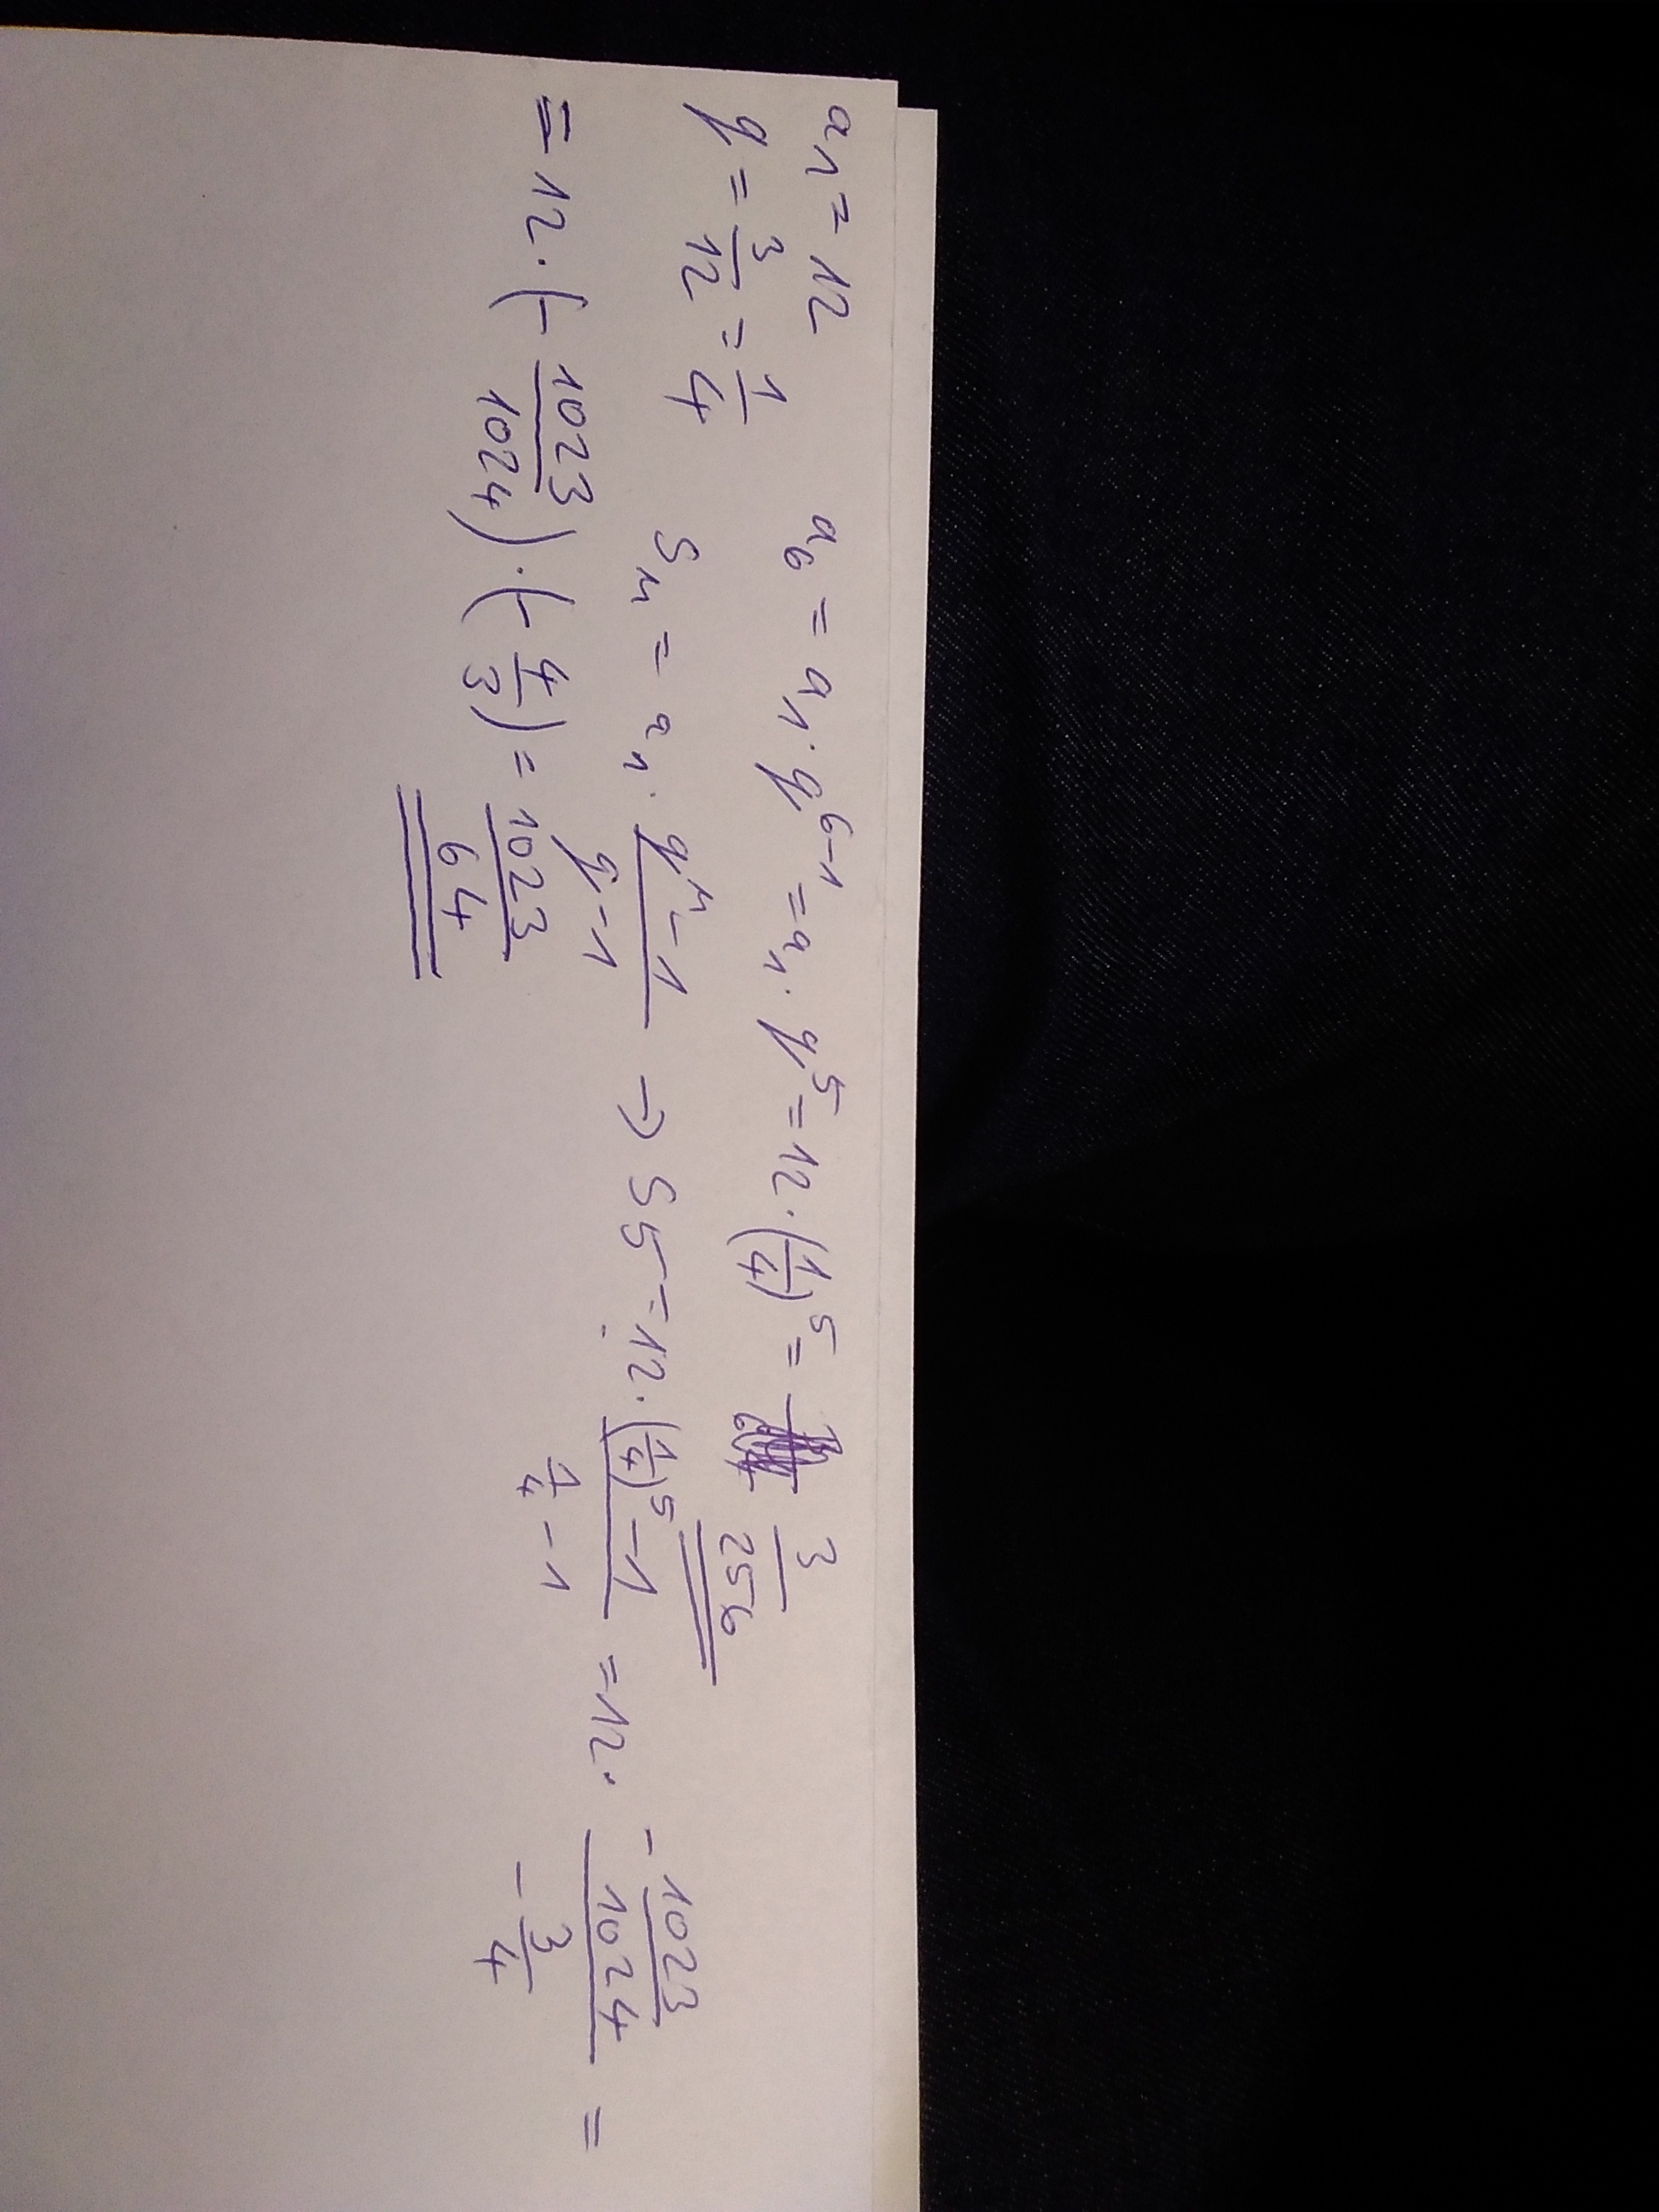 a₁ = 12
q = 3/12 = 1/4
a₆ = a₁ · q⁶⁻¹ = a₁ · q⁵ = 12 · (1/4)⁵ = 3/256
Sₙ = a₁ · (qⁿ - 1)/(q - 1) → S5 = 12 · ((1/4)⁵ - 1)/(1/4 - 1) = 12 · (-1023/1024)/(-3/4) =
= 12 · (-1023/1024) · (-4/3) = 1023/64